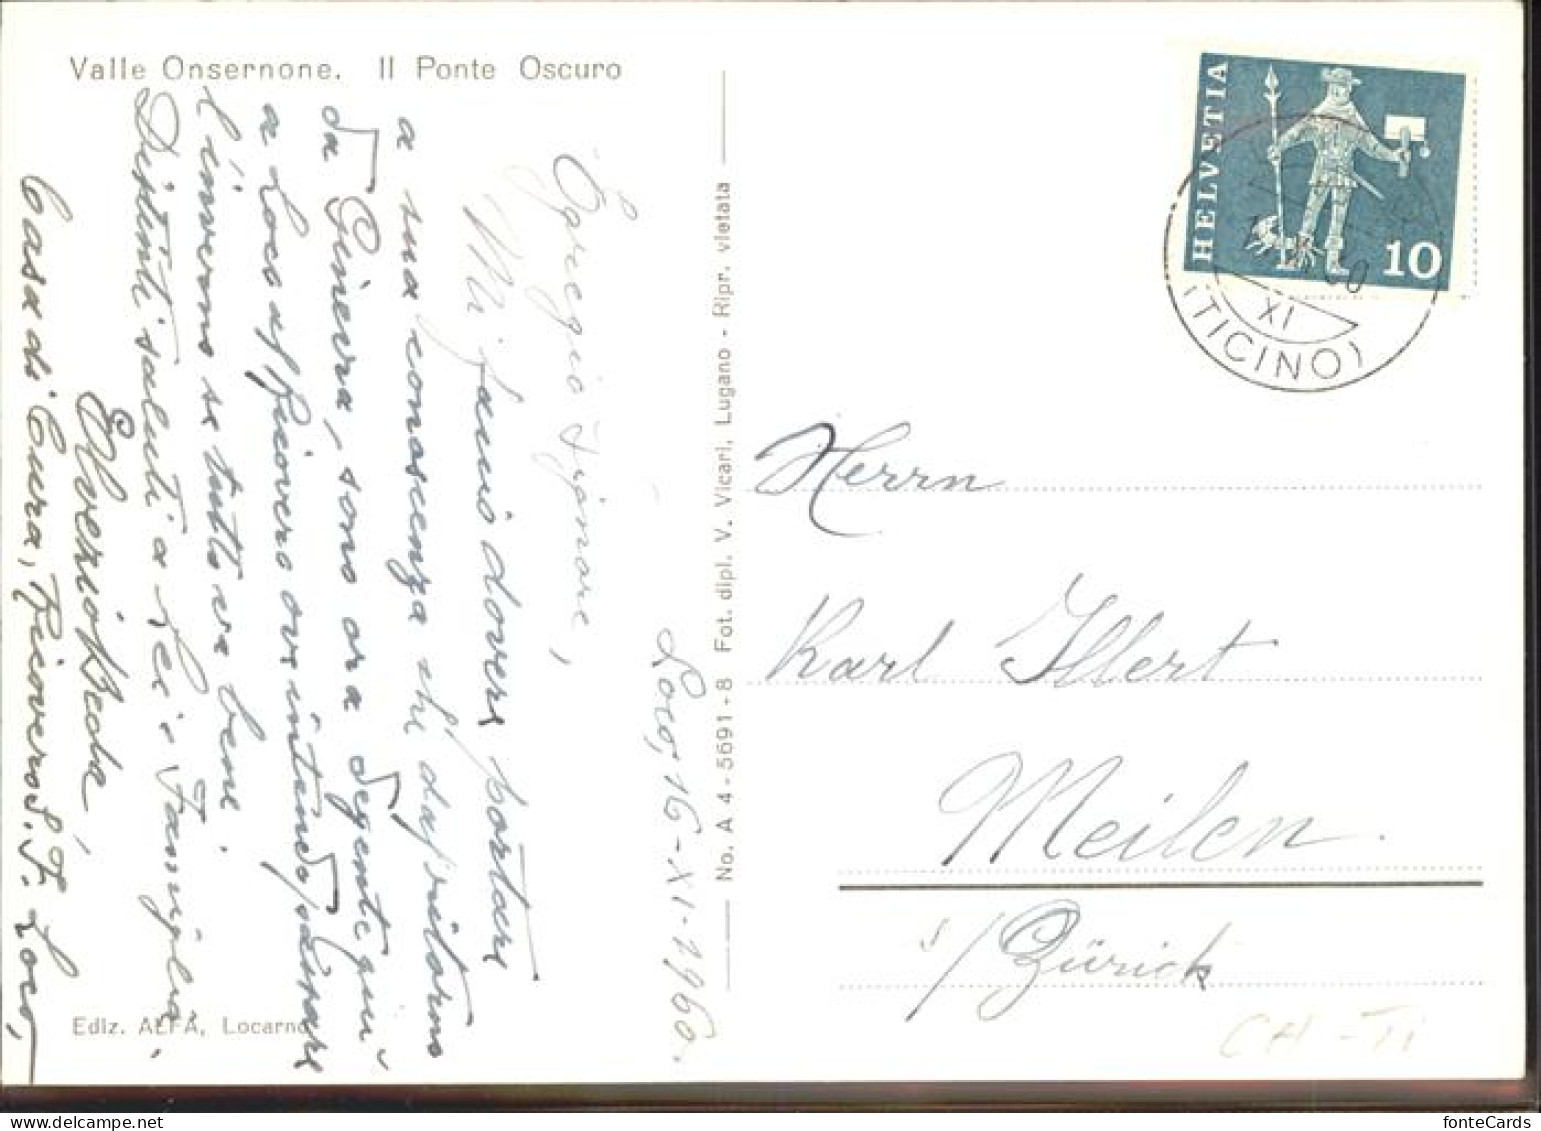 Valle Onsernone. Il Ponte Oscuro
Loco, 16-XI-1960.
Egregio Signore,
Mi faccio dovere portare
a sua conoscenza che d'ap ritorno
da Ginevra, sono ora degente qui
a Loco a/ Ricovero ove intendo passare
l'inverno se tutto va bene.
Distinti saluti a Lei e Famiglia,
Casa di Cura, Ricovero S. F. Loco,
Ediz. ALFA, Locarno
No. A 4 - 5691 - 8 Fot. dipl. V. Vicari, Lugano - Ripr. vietata
HELVETIA
10
XI
(TICINO)
Herrn
Karl Illert
Meilen.
s/ Zürich
CH - TI
fonteCards